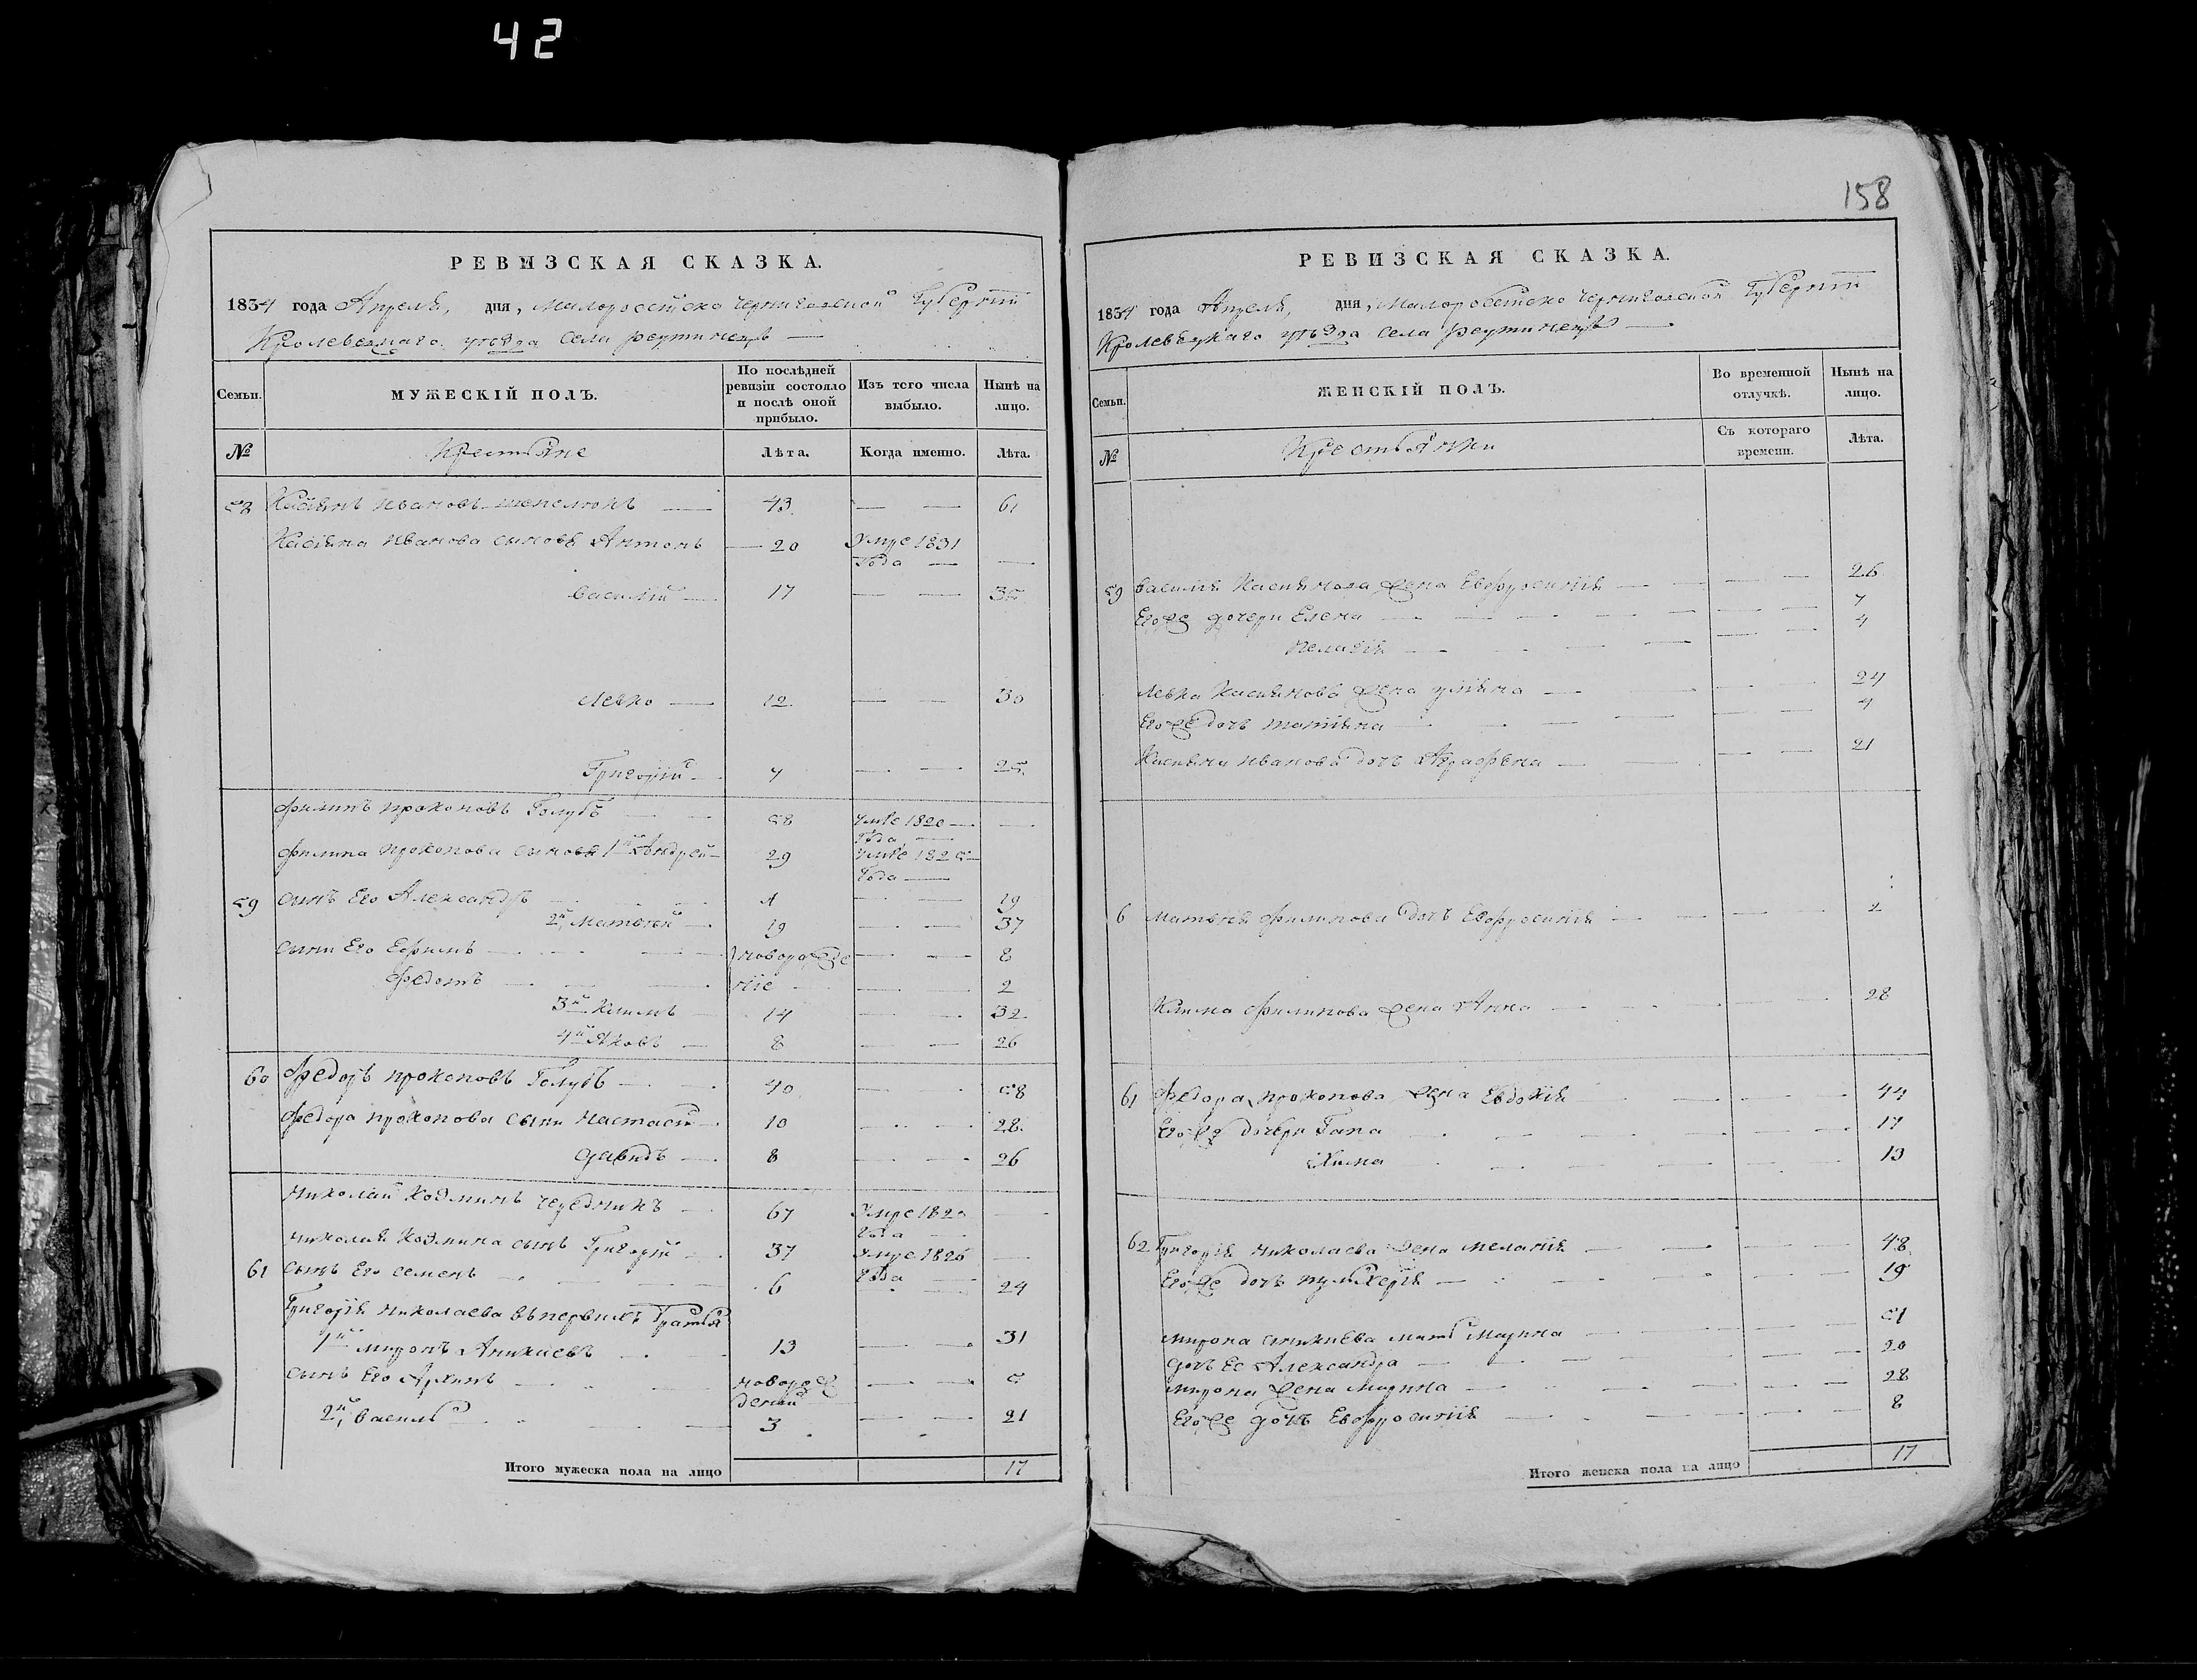 42
158
РЕВИЗСКАЯ СКАЗКА.
1834 года Апреля, дня, Малоросейско Черниговской Губернии
Кролевецкаго уезда села реутинецъ
Семьи. МУЖЕСКІЙ ПОЛЪ. По послѣдней ревизіи состояло и послѣ оной прибыло. Изъ того числа выбыло. Нынѣ на лицо.
№ Крестьяне Лѣта. Когда именно. Лѣта.
58 Касіянъ Ивановъ шепелюкъ 43 — — 61
Касіяна Иванова сыновя Антонъ 20 Умре 1831 Года —
Василий 17 — — 35
Левко 12 — — 30
Григорій 7 — — 25
Филипъ прокоповъ Голубъ 58 умре 1820 Года —
Филипа прокопова сыновя 1й Андрей 29 умре 1825 Года
59 сынъ Его Александръ 1 — — 19
2й Матвей 19 — — 37
сыни Его Ефимъ новорожде — — 8
Федотъ ніе — — 2
3й Климъ 14 — — 32
4й Яковъ 8 — — 26
60 Федоръ прокоповъ Голубъ 40 — — 58
Федора прокопова сыни Настасій 10 — — 28
давидъ 8 — — 26
Николай Козминъ чередникъ 67 Умре 1820 Года —
Николая Козмина сынъ Григорій 37 Умре 1826 Года —
61 сынъ Его семенъ 6 — — 24
Григорія Николаева въпервихъ братья
1й миронъ Аникиевъ 13 — — 31
сынъ Его Архипъ новорожденій — — 5
2й, василь 3 — — 21
Итого мужеска пола на лицо 17
РЕВИЗСКАЯ СКАЗКА.
1834 года Апреля, дня, Малоросейско Черниговской Губернии
Кролевецкаго уезда села реутинецъ
Семьи. ЖЕНСКІЙ ПОЛЪ. Во временной отлучкѣ. Нынѣ на лицо.
№ Крестьянки Съ котораго времени. Лѣта.
59 василия Касиянова жена Евфросиния — — 26
Егоже дочери Елена — — 7
Пелагія — — 4
Левка Касиянова жена улияна — — 24
Егоже дочь татияна — — 4
Касияна Иванова дочь Аграфена — — 21
6 Матвея Филипова дочь Евфросиния — — 2
Клима Филипова жена Анна — — 28
61 Федора прокопова жена Евдокия — — 44
Егоже дочери Гапа — — 17
Химка — — 13
62 Григорія Николаева жена Мелания — — 48
Егоже дочь пулхерия — — 19
мирона аникиева мать Марина — — 51
дочь Ее Александра — — 20
мирона жена Марина — — 28
Егоже дочь Евфросиния — — 8
Итого женска пола на лицо 17